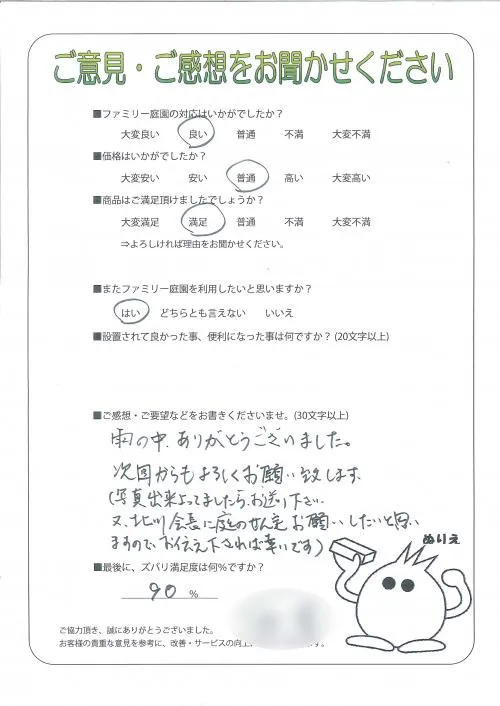 ご意見・ご感想をお聞かせください
■ファミリー庭園の対応はいかがでしたか？
大変良い 良い 普通 不満 大変不満
■価格はいかがでしたか？
大変安い 安い 普通 高い 大変高い
■商品はご満足頂けましたでしょうか？
大変満足 満足 普通 不満 大変不満
⇒よろしければ理由をお聞かせください。
■またファミリー庭園を利用したいと思いますか？
はい どちらとも言えない いいえ
■設置されて良かった事、便利になった事は何ですか？(20文字以上)
■ご感想・ご要望などをお書きくださいませ。(30文字以上)
雨の中、ありがとうございました。
次回からもよろしくお願い致します
(写真出来よってましたら、お送り下さい
又、北川会長に庭のせん定お願いしたいと思い
ますので、お伝え下されば幸いです)
ぬりえ
■最後に、ズバリ満足度は何％ですか？
90 %
ご協力頂き、誠にありがとうございました。
お客様の貴重な意見を参考に、改善・サービスの向上に です。